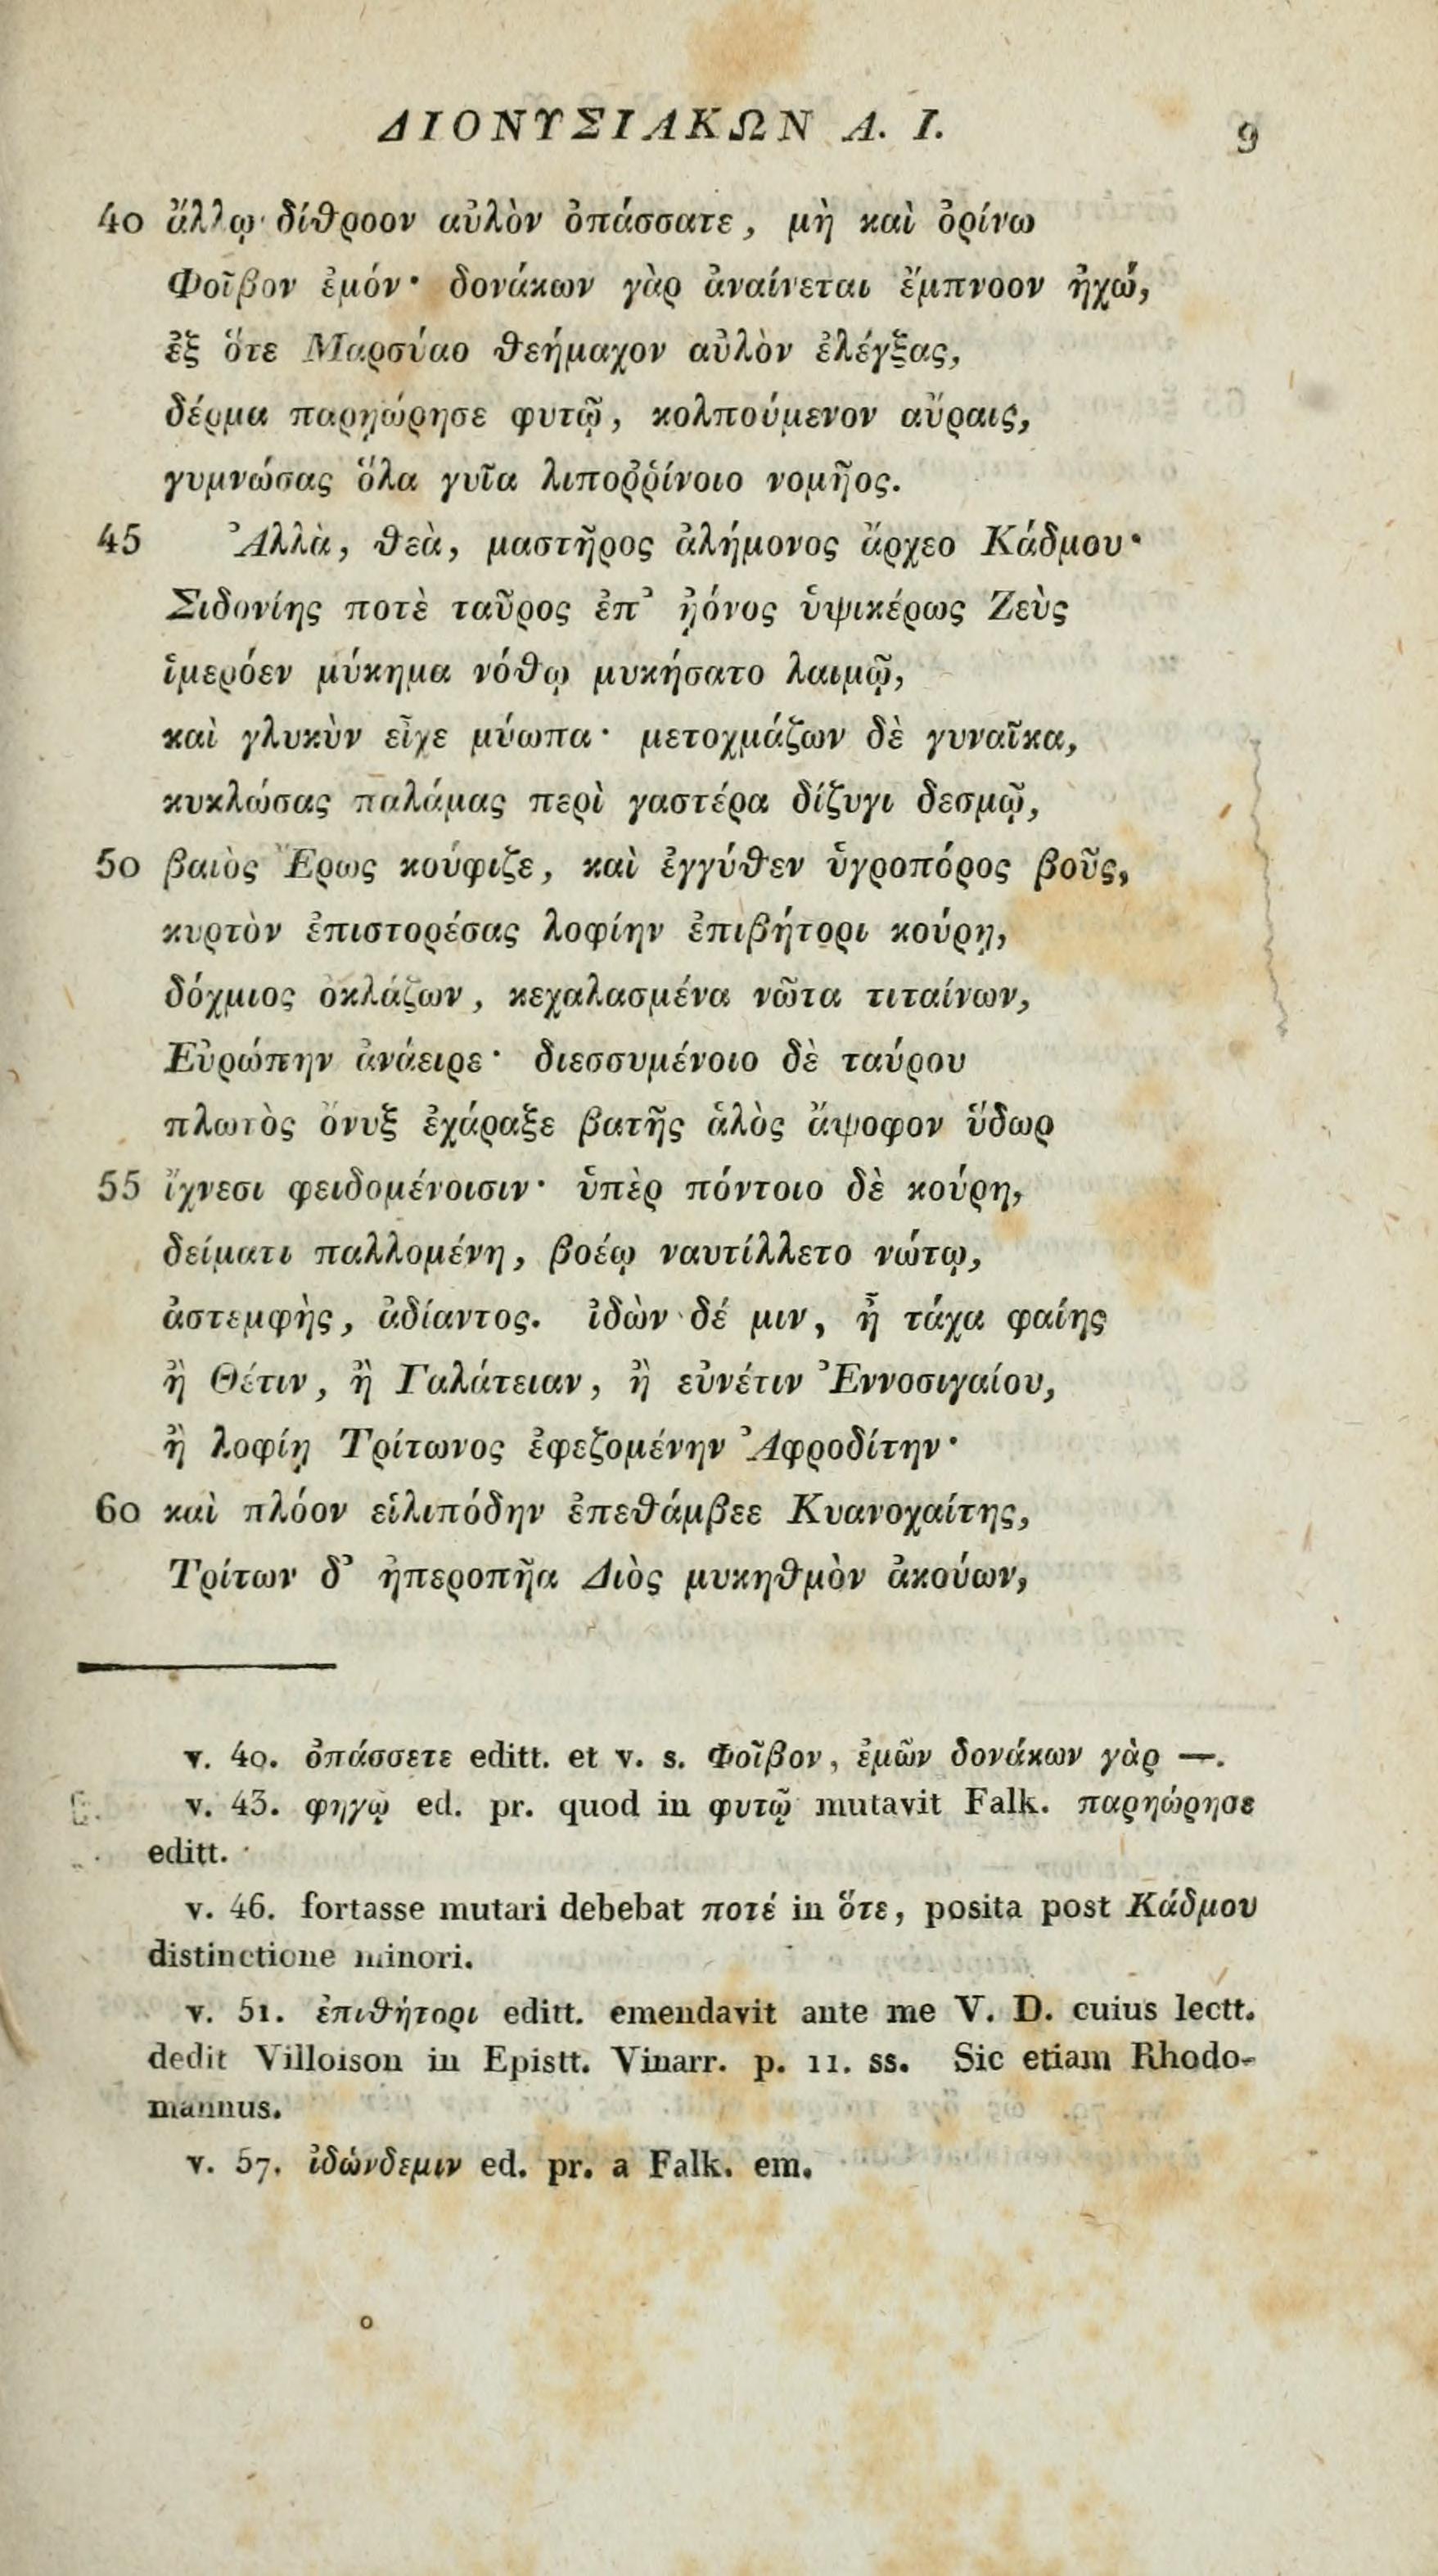 ΔΙΟΝΥΣΙΑΚΩΝ Α. Ι. 9
40 ἄλλῳ δίθροον αὐλὸν ὀπάσσατε, μὴ καὶ ὀρίνω
Φοῖβον ἐμόν· δονάκων γὰρ ἀναίνεται ἔμπνοον ἠχώ,
ἐξ ὅτε Μαρσύαο θεήμαχον αὐλὸν ἐλέγξας,
δέρμα παρῃώρησε φυτῷ, κολπούμενον αὔραις,
γυμνώσας ὅλα γυῖα λιποῤῥίνοιο νομῆος.
45 Ἀλλὰ, θεὰ, μαστῆρος ἀλήμονος ἄρχεο Κάδμου·
Σιδονίης ποτὲ ταῦρος ἐπ’ ᾐόνος ὑψικέρως Ζεὺς
ἱμερόεν μύκημα νόθῳ μυκήσατο λαιμῷ,
καὶ γλυκὺν εἶχε μύωπα· μετοχμάζων δὲ γυναῖκα,
κυκλώσας παλάμας περὶ γαστέρα δίζυγι δεσμῷ,
50 βαιὸς Ἔρως κούφιζε, καὶ ἐγγύθεν ὑγροπόρος βοῦς,
κυρτὸν ἐπιστορέσας λοφίην ἐπιβήτορι κούρῃ,
δόχμιος ὀκλάζων, κεχαλασμένα νῶτα τιταίνων,
Εὐρώπην ἀνάειρε· διεσσυμένοιο δὲ ταύρου
πλωτὸς ὄνυξ ἐχάραξε βατῆς ἁλὸς ἄψοφον ὕδωρ
55 ἴχνεσι φειδομένοισιν· ὑπὲρ πόντοιο δὲ κούρη,
δείματι παλλομένη, βοέῳ ναυτίλλετο νώτῳ,
ἀστεμφὴς, ἀδίαντος. ἰδὼν δέ μιν, ἦ τάχα φαίης
ἢ Θέτιν, ἢ Γαλάτειαν, ἢ εὐνέτιν Ἐννοσιγαίου,
ἢ λοφίῃ Τρίτωνος ἐφεζομένην Ἀφροδίτην·
60 καὶ πλόον εἱλιπόδην ἐπεθάμβεε Κυανοχαίτης,
Τρίτων δ’ ἠπεροπῆα Διὸς μυκηθμὸν ἀκούων,
v. 40. ὀπάσσετε editt. et v. s. Φοῖβον, ἐμῶν δονάκων γὰρ —.
v. 43. φηγῷ ed. pr. quod in φυτῷ mutavit Falk. παρηώρησε
editt.
v. 46. fortasse mutari debebat ποτέ in ὅτε, posita post Κάδμου
distinctione minori.
v. 51. ἐπιθήτορι editt. emendavit ante me V. D. cuius lectt.
dedit Villoison in Epistt. Vinarr. p. 11. ss. Sic etiam Rhodo-
mannus.
v. 57. ἰδώνδεμιν ed. pr. a Falk. em.